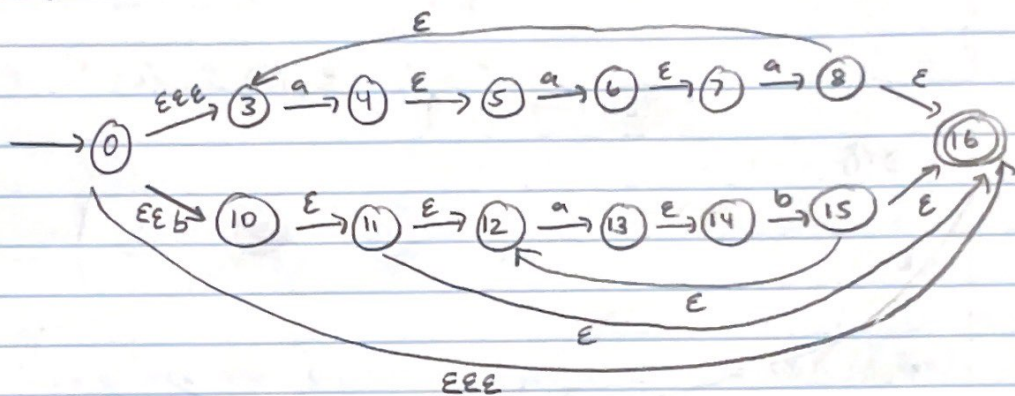 ε
εεε 3 a 4 ε 5 a 6 ε 7 a 8 ε
0 16
εεb 10 ε 11 ε 12 a 13 ε 14 b 15 ε
ε
ε
εεε